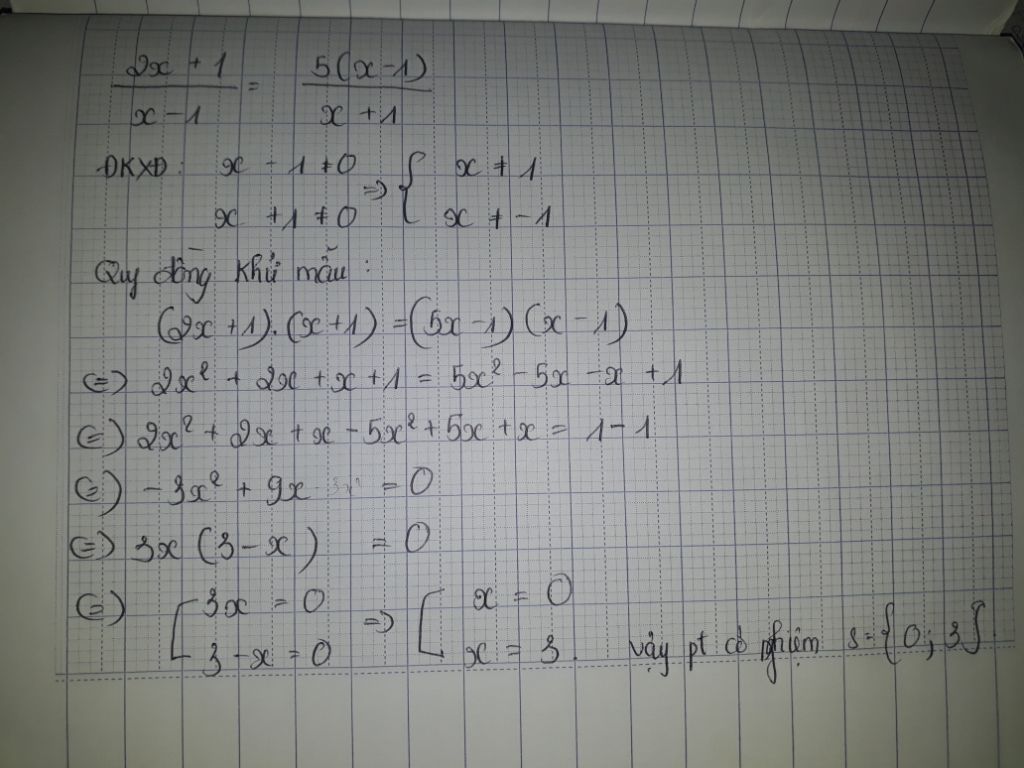 2x + 1 / x - 1 = 5(x - 1) / x + 1
ĐKXĐ: x - 1 ≠ 0 => { x ≠ 1
x + 1 ≠ 0 x ≠ -1
Quy đồng khử mẫu :
(2x + 1).(x + 1) = (5x - 1)(x - 1)
<=> 2x² + 2x + x + 1 = 5x² - 5x - x + 1
<=> 2x² + 2x + x - 5x² + 5x + x = 1 - 1
<=> -3x² + 9x = 0
<=> 3x (3 - x) = 0
<=> [ 3x = 0 => [ x = 0
3 - x = 0 x = 3. vậy pt có nghiệm S = {0; 3}